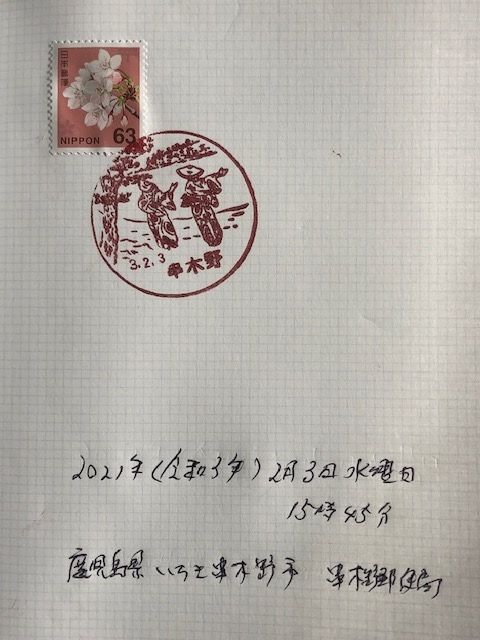 日本郵便
NIPPON 63
3.2.3
串木野
2021年(令和3年)2月3日水曜日
15時45分
鹿児島県いちき串木野市 串木野郵便局